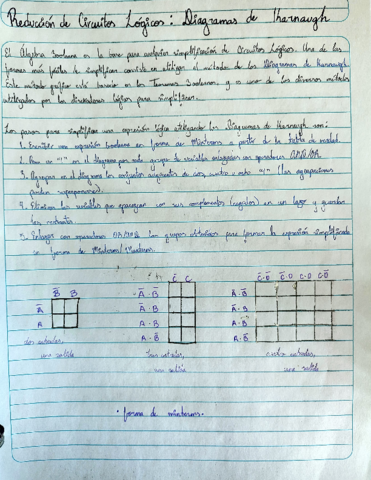 Reducción de Circuitos Lógicos: Diagramas de Kharnaugh
El Álgebra booleana es la base para cualquier simplificación de Circuitos Lógicos. Una de las
formas más fáciles de simplificar consiste en utilizar el método de los Diagramas de Karnaugh.
Este método gráfico está basado en los Teoremas booleanos, y es uno de los diversos métodos
utilizados por los diseñadores lógicos para simplificar.
Los pasos para simplificar una expresión lógica utilizando los Diagramas de Karnaugh son:
1. Escribir una expresión booleana en forma de Mintérminos a partir de la tabla de verdad.
2. Poner un "1" en el diagrama por cada grupo de variables
3. Agrupar en el diagrama los conjuntos adyacentes de dos, cuatro u ocho "1" (las agrupaciones
pueden superponerse).
4. Eliminar las variables que aparezcan con sus complementos (negados) en un lazo y guardar
los restantes
5. Enlazar con operadores los grupos obtenidos para formar la expresión simplificada
en forma de
B̅ B
A̅
A
dos entradas,
una salida
C̅ C
A̅ B̅
A̅ B
A · B
A · B̅
tres entradas,
una salida
C̅·D̅ C̅·D C·D C·D̅
A̅·B̅
A̅·B
A·B
A·B̅
cuatro entradas,
una salida
· forma de minterms.